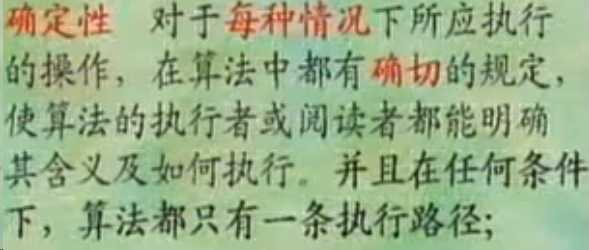 确定性 对于每种情况下所应执行
的操作，在算法中都有确切的规定，
使算法的执行者或阅读者都能明确
其含义及如何执行。并且在任何条件
下，算法都只有一条执行路径；